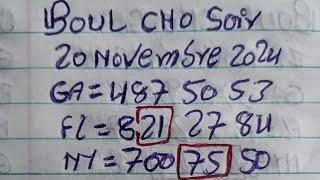 BOUL CHO Soir
20 Novembre 2024
GA = 487 50 53
FL = 821 27 84
NY = 700 75 50